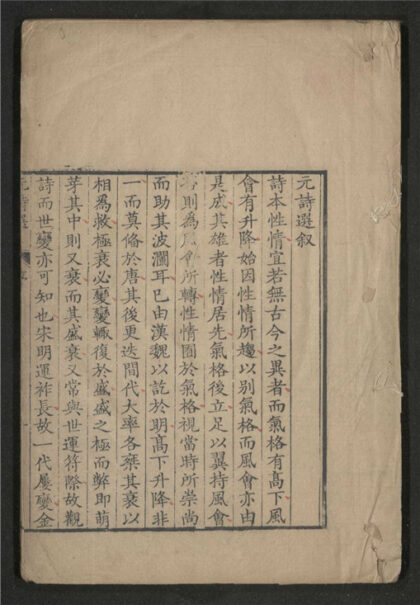 元詩選叙
詩本性情宜若無古今之異者而氣格有髙下風
會有升降始因性情所趨以别氣格而風會亦由
是成其雄者性情居先氣格後立足以翼持風會
則為風會所轉性情囿於氣格視當時所崇尚
而助其波瀾耳已由漢魏以訖於明髙下升降非
一而莫備於唐其後更迭間代大率各棄其衰以
相為救極衰必變變輒復於盛盛之極而弊即萌
芽其中則又衰而其盛衰又常與世運符際故觀
詩而世變亦可知也宋明運祚長故一代屢變金
元詩選